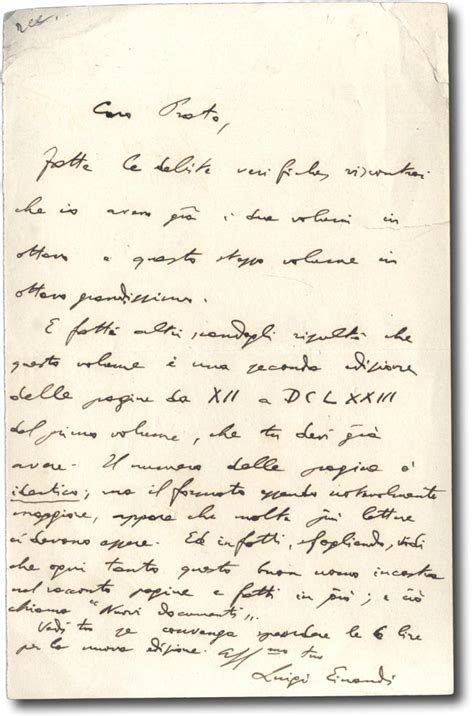 Caro Prato,
Fatte le debite verifiche, riscontrai
che io avevo già i due volumi in
ottavo e questo stesso volume in
ottavo grandissimo.
E fatti altri scandagli risultò che
questo volume è una seconda edizione
delle pagine da XII a DCLXXIII
del primo volume, che tu devi già
avere. Il numero delle pagine è
identico; ma il formato essendo notevolmente
maggiore, appare che molte più lettere
ci devono essere. Ed infatti, sfogliando, vedi
che ogni tanto questo buon uomo incastra
nel racconto pagine e fatti in più; e ciò
chiama "Nuovi documenti".
Vedi tu se convenga spendere le 6 lire
per la nuova edizione. Aff.mo tuo
Luigi Einaudi